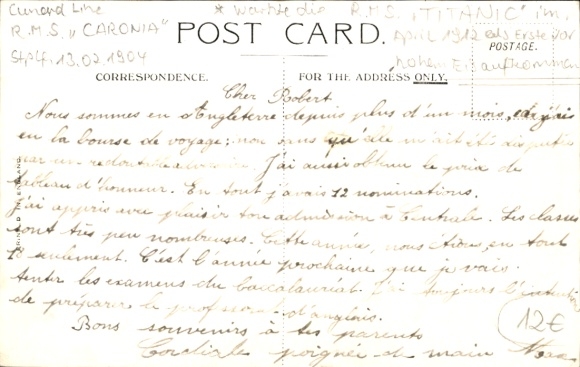 Cunard Line
R.M.S. „CARONIA"
13.02.1904
* warnte die R.M.S. „TITANIC" im
April 1912 als Erste vor
hohem Eisaufkommen
POST CARD.
POSTAGE.
CORRESPONDENCE.
FOR THE ADDRESS ONLY.
PRINTED IN ENGLAND
Cher Robert
Nous sommes en Angleterre depuis plus d'un mois, j'ai
eu la bourse de voyage; non sans qu'elle m'ait été disputée
par un redoutable. J'ai aussi obtenu le prix de
tableau d'honneur. En tout j'avais 12 nominations.
J'ai appris avec plaisir ton admission à Centrale. Les classes
sont très peu nombreuses. Cette année, nous étions en tout
seulement. C'est l'année prochaine que je vais
tenter les examens du baccalauréat. J'ai toujours l'intention
de préparer le d'anglais.
Bons souvenirs à tes parents
Cordiale poignée de main
12€